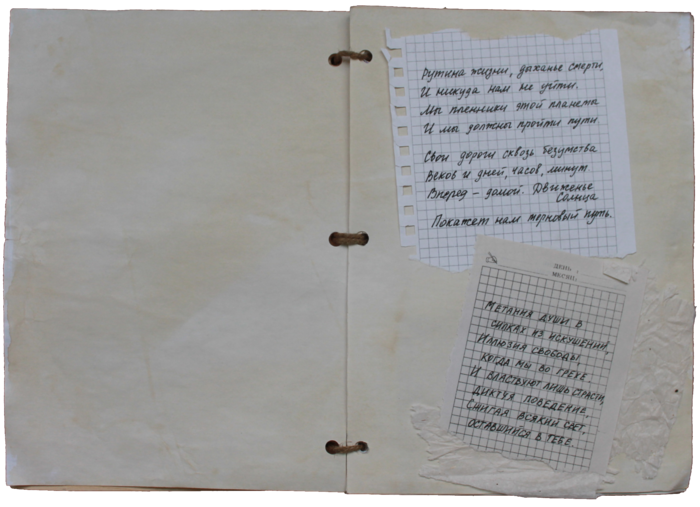 Рутина жизни, дыханье смерти,
И никуда нам не уйти.
Мы пленники этой планеты
И мы должны пройти пути.
Свои дороги сквозь безумства
Веков и дней, часов, минут.
Вперед – домой. Движенье
Солнца
Покажет нам терновый путь.
ДЕНЬ
МЕСЯЦ
МЕТАНИЯ ДУШИ В
СИЛКАХ ИЗ ИСКУШЕНИЙ,
ИЛЛЮЗИЯ СВОБОДЫ,
КОГДА МЫ ВО ГРЕХЕ
И ВЛАСТВУЮТ ЛИШЬ СТРАСТИ,
ДИКТУЯ ПОВЕДЕНИЕ,
СЖИГАЯ ВСЯКИЙ СВЕТ,
ОСТАВШИЙСЯ В ТЕБЕ.